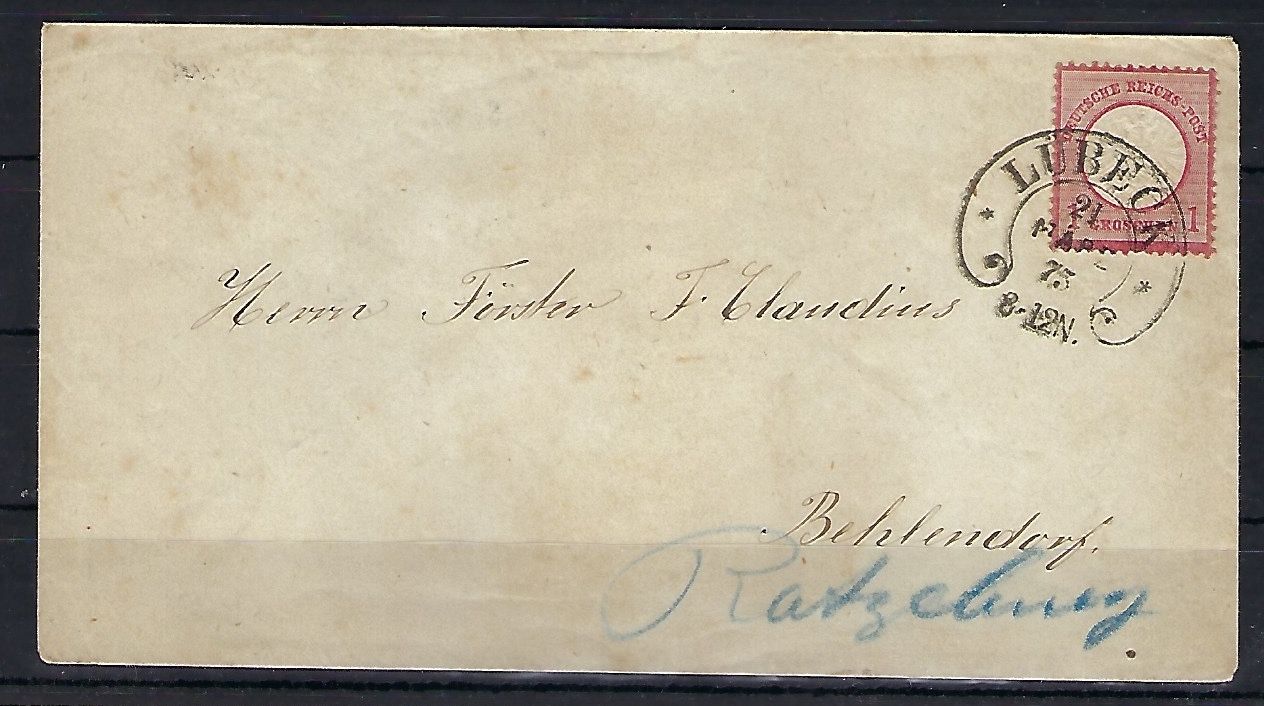 DEUTSCHE REICHS-POST
1 GROSCHEN 1
LÜBECK
21
MÄRZ
75
8-12N.
Herrn Förster F. Claudius
Behlendorf.
Ratzeburg